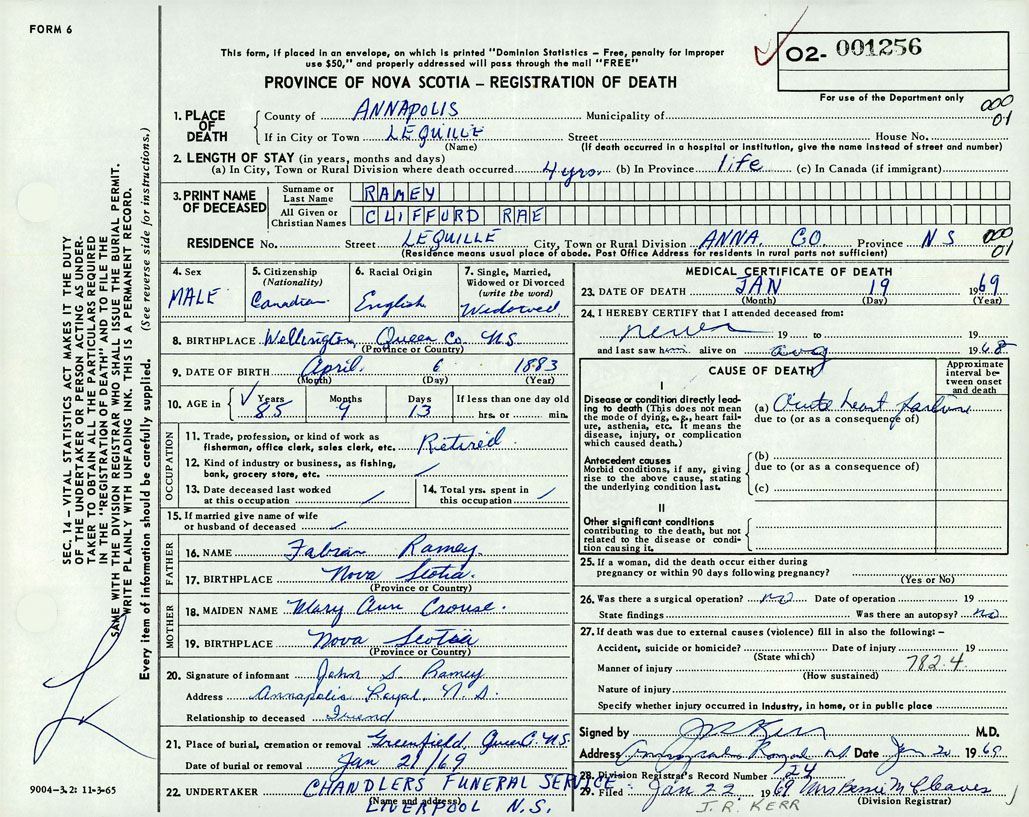 FORM 6
This form, if placed in an envelope, on which is printed "Dominion Statistics – Free, penalty for improper
use $50," and properly addressed will pass through the mail "FREE"
PROVINCE OF NOVA SCOTIA – REGISTRATION OF DEATH
O2- 001256
For use of the Department only
1. PLACE OF DEATH
County of ANNAPOLIS Municipality of
000
01
If in City or Town LEQUILLE Street House No.
(Name) (If death occurred in a hospital or institution, give the name instead of street and number)
2. LENGTH OF STAY (in years, months and days)
(a) In City, Town or Rural Division where death occurred 4 yrs. (b) In Province life (c) In Canada (if immigrant)
3. PRINT NAME OF DECEASED
Surname or Last Name RAMEY
All Given or Christian Names CLIFFURD RAE
RESIDENCE No. Street LEQUILLE City, Town or Rural Division ANNA. CO. Province NS
000
01
(Residence means usual place of abode. Post Office Address for residents in rural parts not sufficient)
4. Sex MALE
5. Citizenship (Nationality) Canadian
6. Racial Origin English
7. Single, Married, Widowed or Divorced (write the word) Widowed
8. BIRTHPLACE Wellington, Queen Co. N.S.
(Province or Country)
9. DATE OF BIRTH April 6 1883
(Month) (Day) (Year)
10. AGE in Years 85 Months 9 Days 13 If less than one day old
hrs. or min.
OCCUPATION
11. Trade, profession, or kind of work as
fisherman, office clerk, sales clerk, etc. Retired
12. Kind of industry or business, as fishing,
bank, grocery store, etc.
13. Date deceased last worked
at this occupation
14. Total yrs. spent in
this occupation
15. If married give name of wife
or husband of deceased
FATHER
16. NAME Fabian Ramey
17. BIRTHPLACE Nova Scotia.
(Province or Country)
MOTHER
18. MAIDEN NAME Mary Ann Crouse.
19. BIRTHPLACE Nova Scotia
(Province or Country)
20. Signature of informant John S. Ramey
Address Annapolis Royal, N.S.
Relationship to deceased Friend
21. Place of burial, cremation or removal Greenfield, Queen C. N.S.
Date of burial or removal Jan 21/69
22. UNDERTAKER CHANDLERS FUNERAL SERVICE
(Name and address)
LIVERPOOL N.S.
MEDICAL CERTIFICATE OF DEATH
23. DATE OF DEATH JAN 19 1969
(Month) (Day) (Year)
24. I HEREBY CERTIFY that I attended deceased from:
never 19 to
and last saw him alive on Aug 1968
CAUSE OF DEATH
Approximate interval between onset and death
I
Disease or condition directly leading to death (This does not mean the mode of dying, e.g., heart failure, asthenia, etc. It means the disease, injury, or complication which caused death.)
(a) Acute heart failure
due to (or as a consequence of)
Antecedent causes
Morbid conditions, if any, giving rise to the above cause, stating the underlying condition last.
(b)
due to (or as a consequence of)
(c)
II
Other significant conditions
contributing to the death, but not related to the disease or condition causing it.
25. If a woman, did the death occur either during
pregnancy or within 90 days following pregnancy?
(Yes or No)
26. Was there a surgical operation? No Date of operation 19
State findings Was there an autopsy? No
27. If death was due to external causes (violence) fill in also the following: –
Accident, suicide or homicide? Date of injury 19
(State which)
Manner of injury 782.4
(How sustained)
Nature of injury
Specify whether injury occurred in industry, in home, or in public place
Signed by J R Kerr M.D.
Address Annapolis Royal N.S Date Jan 20 1969
28. Division Registrar's Record Number 124
29. Filed Jan 22 1969 Mrs Bessie McCleaves
(Division Registrar)
J. R. KERR
SEC. 14 – VITAL STATISTICS ACT MAKES IT THE DUTY
OF THE UNDERTAKER OR PERSON ACTING AS UNDER-
TAKER TO OBTAIN ALL THE PARTICULARS REQUIRED
IN THE "REGISTRATION OF DEATH" AND TO FILE THE
SAME WITH THE DIVISION REGISTRAR WHO SHALL ISSUE THE BURIAL PERMIT.
WRITE PLAINLY WITH UNFADING INK. THIS IS A PERMANENT RECORD.
Every item of information should be carefully supplied. (See reverse side for instructions.)
9004-3.2: 11-3-65